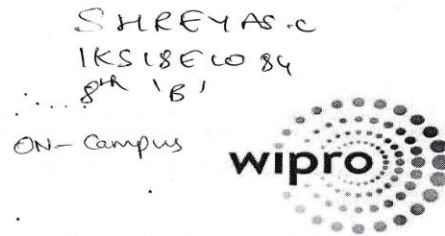 SHREYAS.C
1KS18EC084
8th 'B'
ON-Campus
wipro